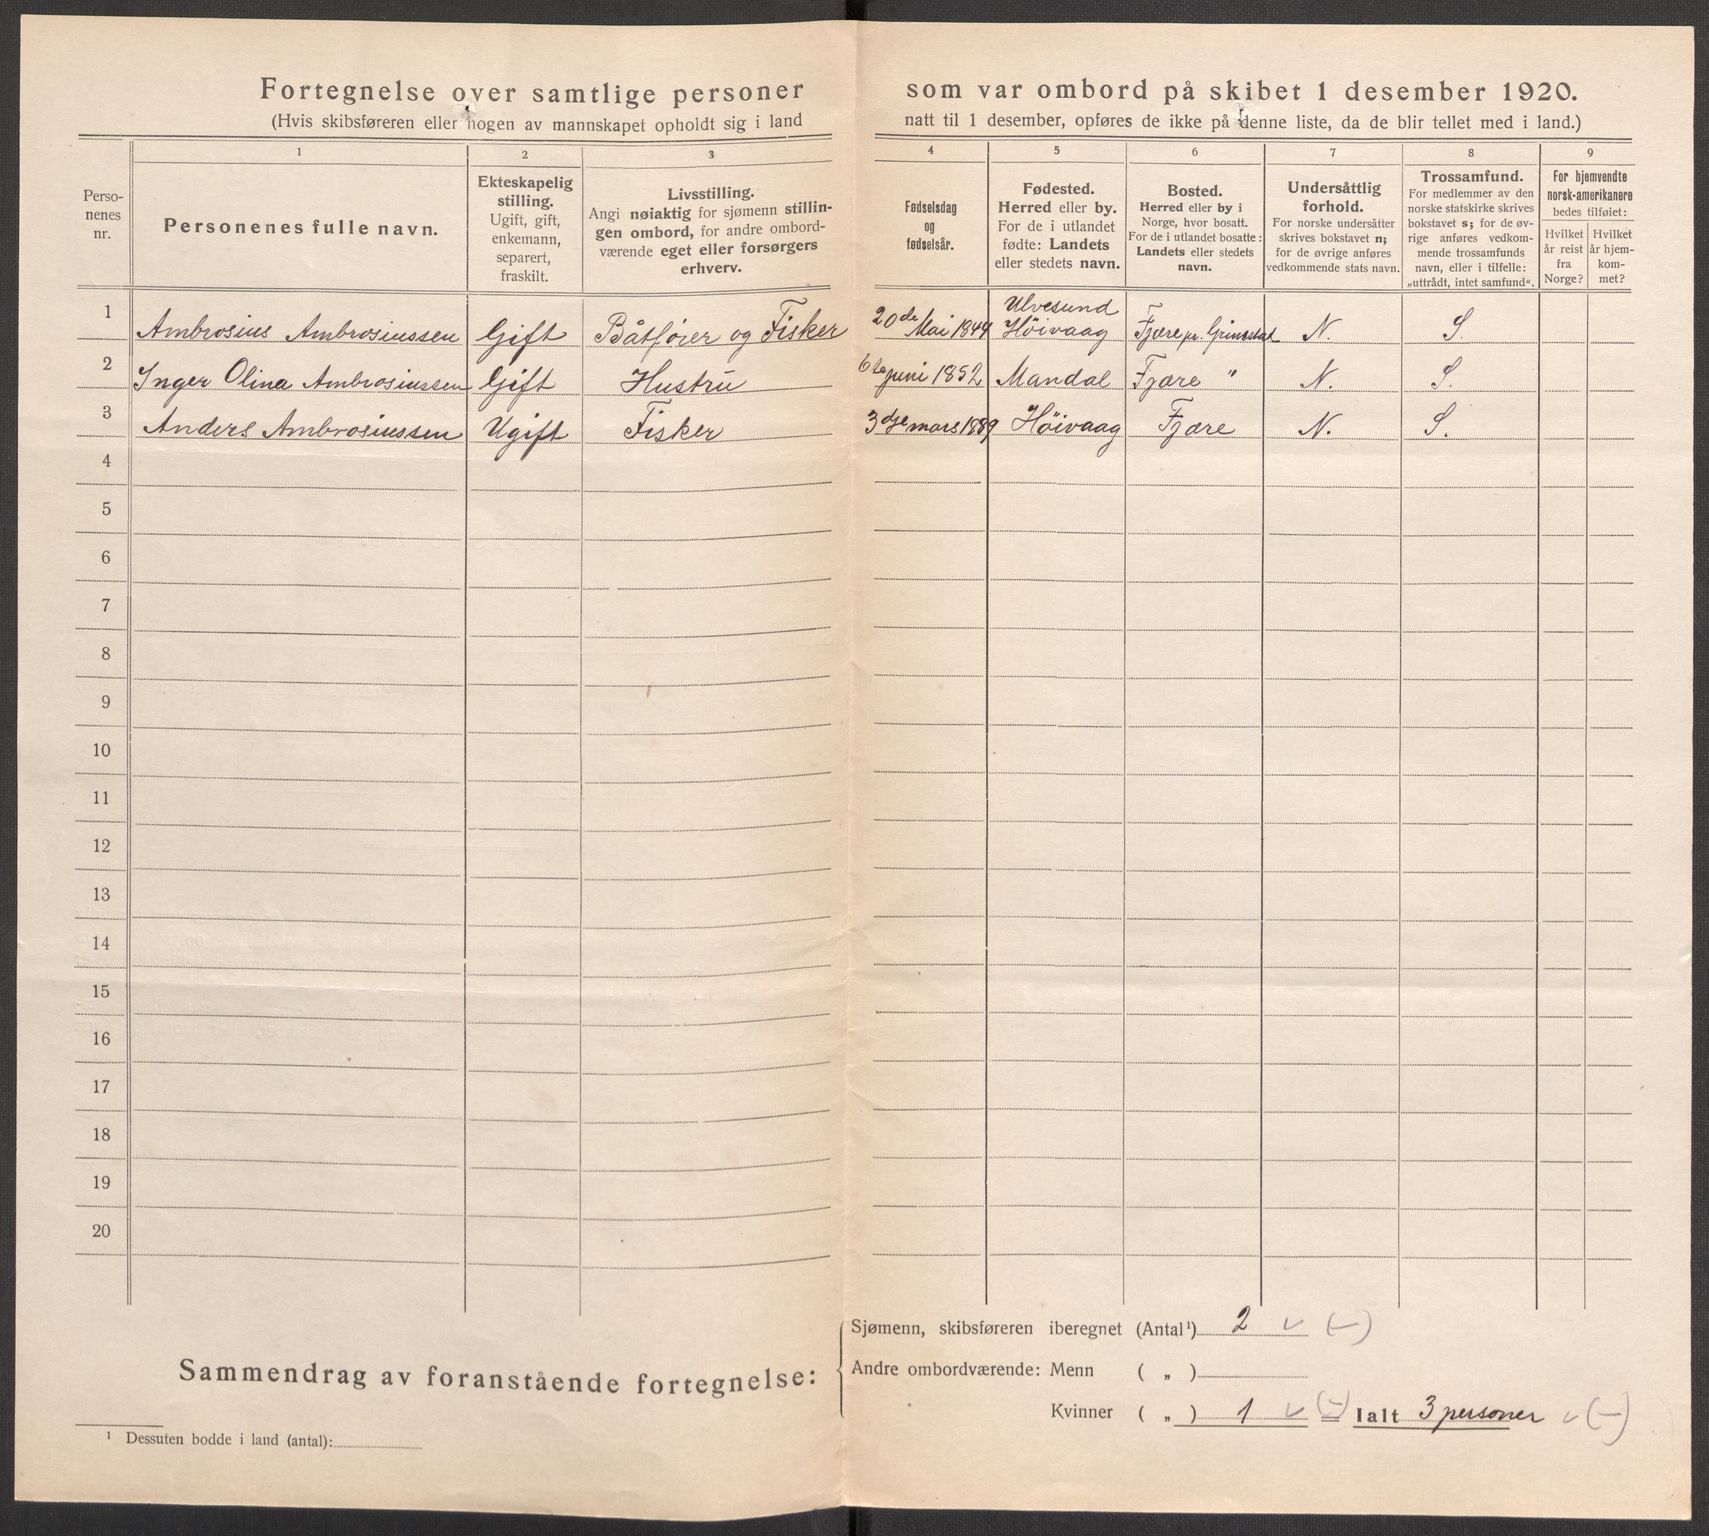 Fortegnelse over samtlige personer som var ombord på skibet 1 desember 1920.
(Hvis skibsføreren eller nogen av mannskapet opholdt sig i land natt til 1 desember, opføres de ikke på denne liste, da de blir tellet med i land.)
1 2 3 4 5 6 7 8 9
Personenes nr.
Personenes fulle navn.
Ekteskapelig stilling.
Ugift, gift,
enkemann,
separert,
fraskilt.
Livsstilling.
Angi nøiaktig for sjømenn stillin-
gen ombord, for andre ombord-
værende eget eller forsørgers
erhverv.
Fødselsdag
og
fødselsår.
Fødested.
Herred eller by.
For de i utlandet
fødte: Landets
eller stedets navn.
Bosted.
Herred eller by i
Norge, hvor bosatt.
For de i utlandet bosatte:
Landets eller stedets
navn.
Undersåttlig
forhold.
For norske undersåtter
skrives bokstavet n;
for de øvrige anføres
vedkommende stats navn.
Trossamfund.
For medlemmer av den
norske statskirke skrives
bokstavet s; for de øv-
rige anføres vedkom-
mende trossamfunds
navn, eller i tilfelle:
„uttrådt, intet samfund".
For hjemvendte
norsk-amerikanere
bedes tilføiet:
Hvilket
år reist
fra
Norge?
Hvilket
år hjem-
kom-
met?
1 Ambrosius Ambrosiussen Gift Båtfører og Fisker 20de Mai 1844 Ulvesund Høivaag Fjære pr. Grimstad N. S.
2 Inger Olina Ambrosiussen Gift Hustru 6te juni 1852 Mandal Fjære " N. S.
3 Anders Ambrosiussen Ugift Fisker 3dje mars 1889 Høivaag Fjære N. S.
4
5
6
7
8
9
10
11
12
13
14
15
16
17
18
19
20
Sammendrag av foranstående fortegnelse:
Sjømenn, skibsføreren iberegnet (Antal¹) 2 v (–)
Andre ombordværende: Menn ( „ )
Kvinner ( „ ) 1 v (–) = Ialt 3 personer v (–)
¹ Dessuten bodde i land (antal):